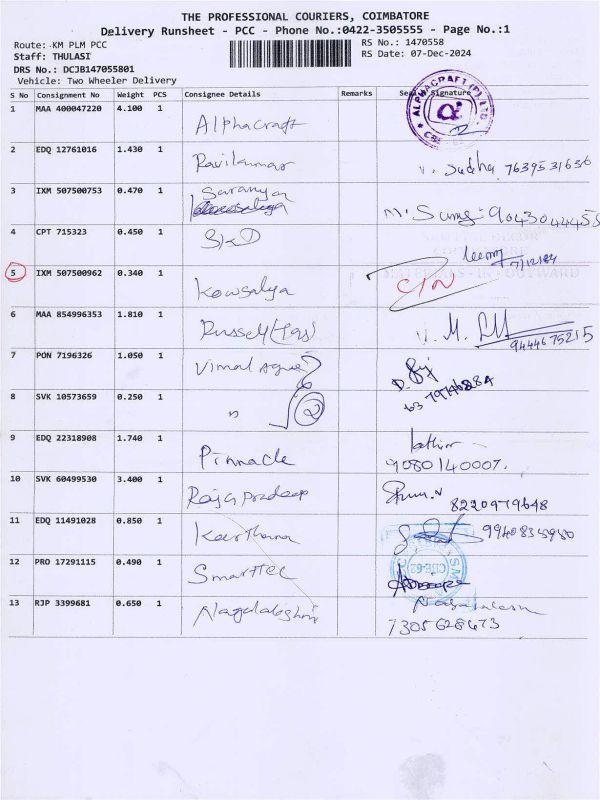 THE PROFESSIONAL COURIERS, COIMBATORE
Delivery Runsheet - PCC - Phone No.:0422-3505555 - Page No.:1
Route: KM PLM PCC
RS No.: 1470558
Staff: THULASI
RS Date: 07-Dec-2024
DRS No.: DCJB147055801
Vehicle: Two Wheeler Delivery
S No Consignment No Weight PCS Consignee Details Remarks Signature
1 MAA 400047220 4.100 1 Alphacraft
ALPHACRAFT (P) LTD.
2 EDQ 12761016 1.430 1 Ravikumar V. Sudha 7639531636
3 IXM 507500753 0.470 1 Saranya 9043044455
4 CPT 715323 0.450 1 SKD 7/12/24
5 IXM 507500962 0.340 1 Kowsalya
6 MAA 854996353 1.810 1 9444675215
7 PON 7196326 1.050 1 Vimal
8 SVK 10573659 0.250 1 " 2
9 EDQ 22318908 1.740 1 Pinnacle 9080140007.
10 SVK 60499530 3.400 1 Raja pradeep 8220979648
11 EDQ 11491028 0.850 1 9940835950
12 PRO 17291115 0.490 1 Smarttec
CBE-62
13 RJP 3399681 0.650 1 Nagalakshmi
7305628673